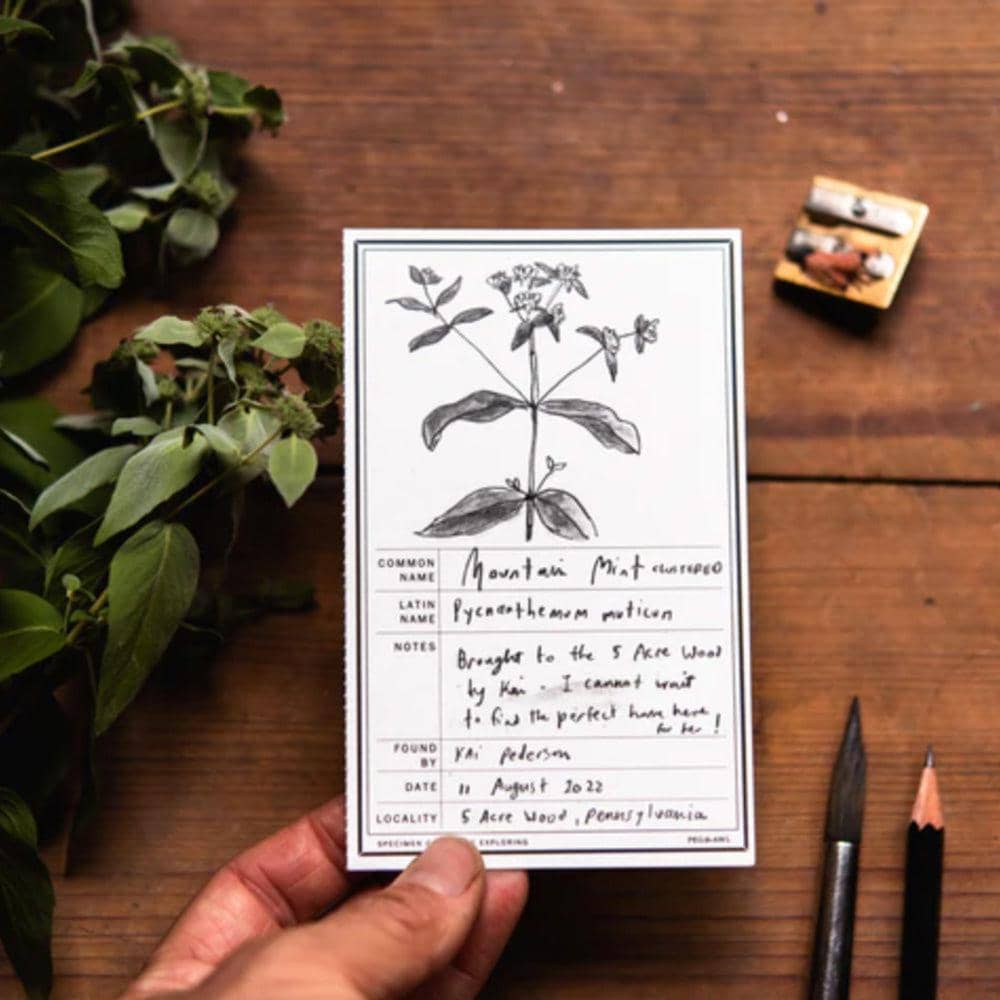 COMMON NAME Mountain Mint CLUSTERED
LATIN NAME Pycnanthemum muticum
NOTES Brought to the 5 Acre Wood
by Kai - I cannot wait
to find the perfect home here
for her!
FOUND BY KAi Pederson
DATE 11 August 2022
LOCALITY 5 Acre Wood, Pennsylvania
SPECIMEN EXPLORING PEG & AWL